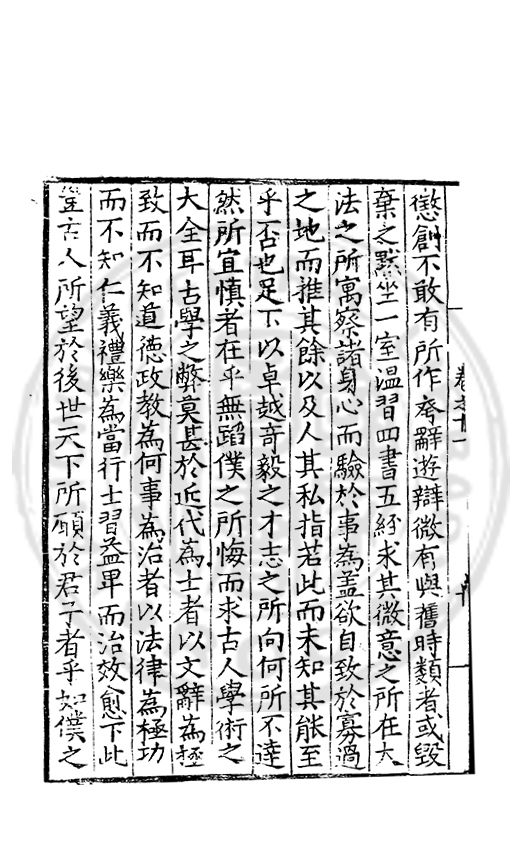 懲創不敢有所作夸辭遊辯微有與舊時類者或毀
棄之默坐一室溫習四書五經求其微意之所在大
法之所寓察諸身心而驗於事為蓋欲自致於寡過
之地而推其餘以及人其私指若此而未知其能至
乎否也足下以卓越奇毅之才志之所向何所不達
然所宜慎者在乎無蹈僕之所悔而求古人學術之
大全耳古學之弊莫甚於近代為士者以文辭為極
致而不知道德政教為何事為治者以法律為極功
而不知仁義禮樂為當行士習益卑而治效愈下此
豈古人所望於後世天下所願於君子者乎如僕之
卷之十一